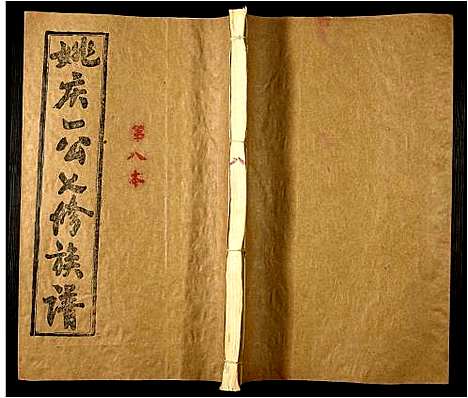 姚庆一公七修族谱
第八本
八